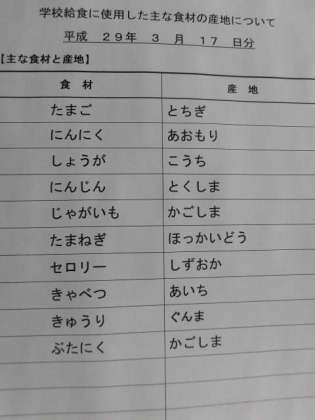 学校給食に使用した主な食材の産地について
平成 29年 3 月 17 日分
【主な食材と産地】
食 材 産 地
たまご とちぎ
にんにく あおもり
しょうが こうち
にんじん とくしま
じゃがいも かごしま
たまねぎ ほっかいどう
セロリー しずおか
きゃべつ あいち
きゅうり ぐんま
ぶたにく かごしま